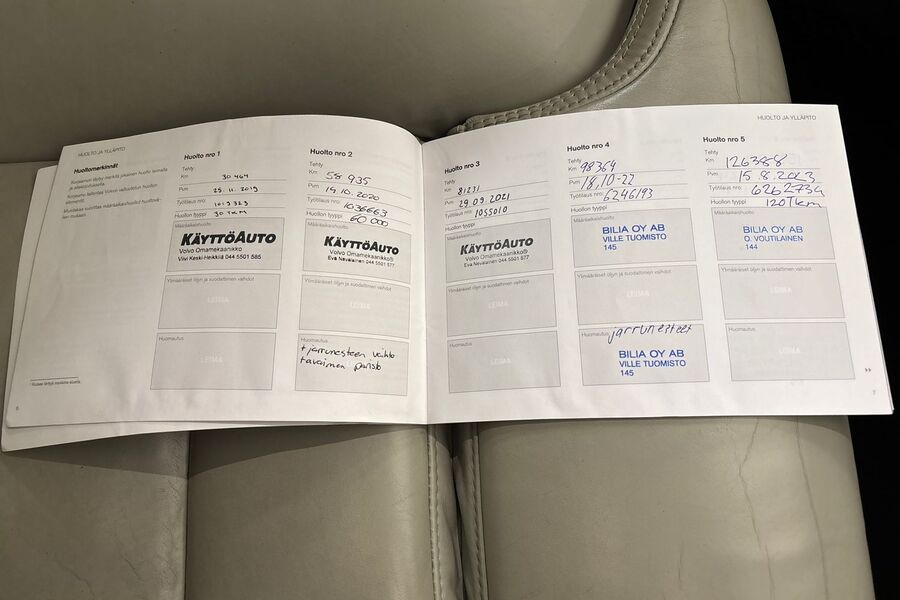 HUOLTO JA YLLÄPITO
Huoltomerkinnät
Huolto nro 1
Tehty
Km 30 464
Pvm 25. 11. 2019
Työtilaus nro:
Huollon tyyppi 30 TKM
Määräaikaishuolto
KÄYTTÖAUTO
Volvo Omamekaanikko
Viivi Keski-Heikkilä 044 5501 585
Ylimääräiset öljyn ja suodattimen vaihdot
LEIMA
Huomautus
LEIMA
6
Huolto nro 2
Tehty
Km 58 935
Pvm 19.10.2020
Työtilaus nro: 1036663
Huollon tyyppi 60 000
Määräaikaishuolto
KÄYTTÖAUTO
Volvo Omamekaanikko®
Eva Nevalainen 044 5501 577
Ylimääräiset öljyn ja suodattimen vaihdot
LEIMA
Huomautus
+ jarrunesteen vaihto
Huolto nro 3
Tehty
Km 81231
Pvm 29.09.2021
Työtilaus nro: 1055010
Huollon tyyppi
Määräaikaishuolto
KÄYTTÖAUTO
Volvo Omamekaanikko®
Eva Nevalainen 044 5501 577
Ylimääräiset öljyn ja suodattimen vaihdot
LEIMA
Huomautus
LEIMA
Huolto nro 4
Tehty
Km 98364
Pvm 18,10-22
Työtilaus nro: 6246193
Huollon tyyppi
Määräaikaishuolto
BILIA OY AB
VILLE TUOMISTO
145
Ylimääräiset öljyn ja suodattimen vaihdot
LEIMA
Huomautus jarrunesteet
BILIA OY AB
VILLE TUOMISTO
145
HUOLTO JA YLLÄPITO
Huolto nro 5
Tehty
Km 126388
Pvm 15.8.2023
Työtilaus nro:
Huollon tyyppi 120Tkm
Määräaikaishuolto
BILIA OY AB
O. VOUTILAINEN
144
Ylimääräiset öljyn ja suodattimen vaihdot
LEIMA
Huomautus
LEIMA
7